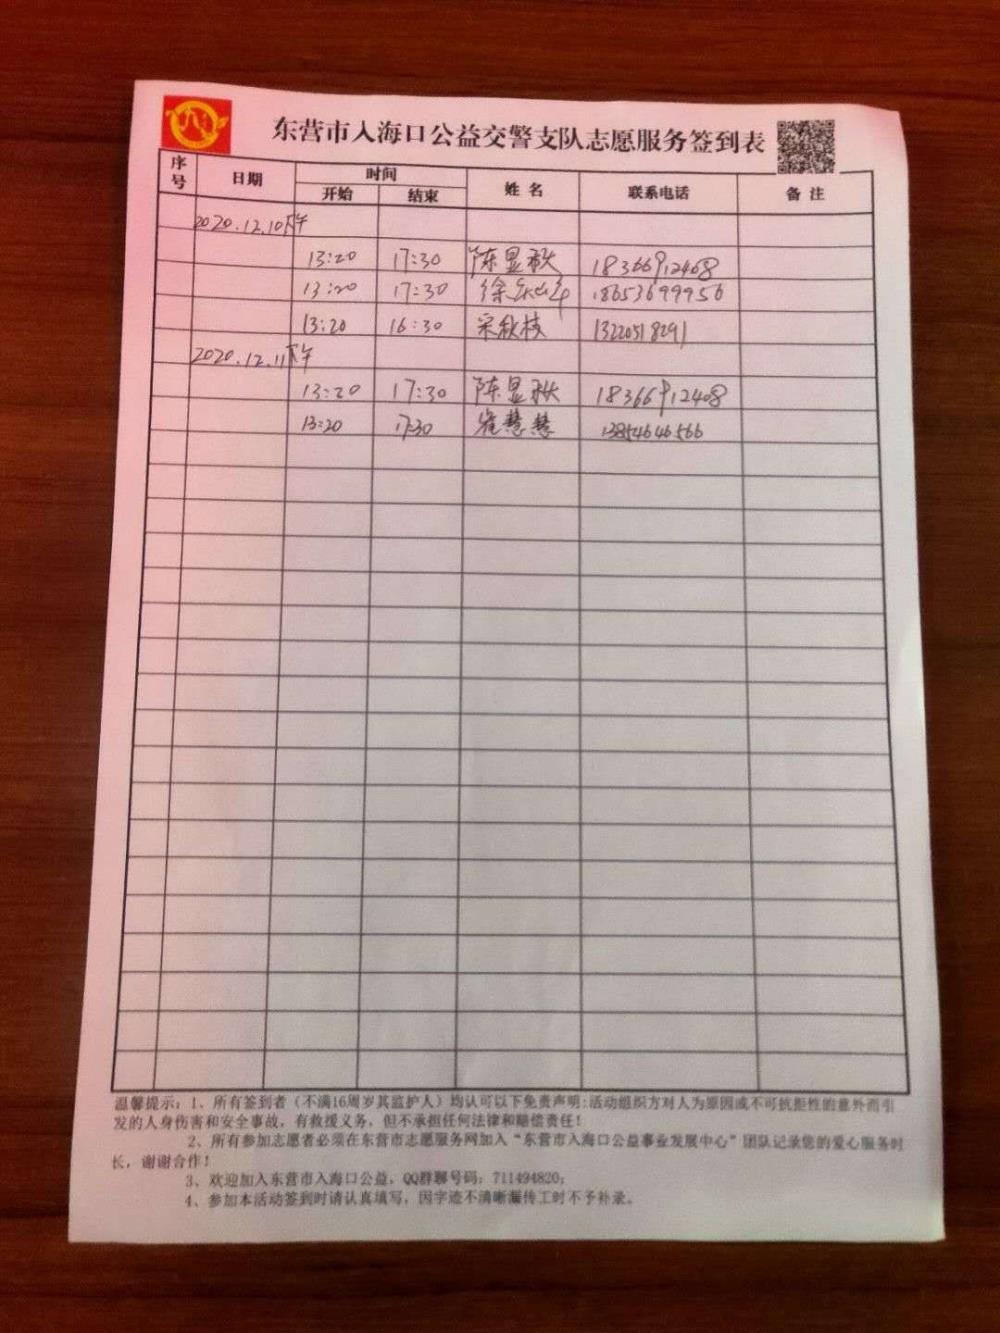 东营市入海口公益交警支队志愿服务签到表
序号 日期 时间 姓名 联系电话 备注
开始 结束
2020.12.10下午
13:20 17:30 陈显秋 18366912408
13:20 17:30 徐 18653699956
13:20 16:30 宋秋枝 13220518291
2020.12.11下午
13:20 17:30 陈显秋 18366912408
13:20 17:30 崔慧慧 13854646566
温馨提示：1、所有签到者（不满16周岁其监护人）均认可以下免责声明:活动组织方对人为原因或不可抗拒性的意外而引
发的人身伤害和安全事故，有救援义务，但不承担任何法律和赔偿责任！
2、所有参加志愿者必须在东营市志愿服务网加入“东营市入海口公益事业发展中心”团队记录您的爱心服务时
长，谢谢合作！
3、欢迎加入东营市入海口公益，QQ群聊号码：711494820；
4、参加本活动签到时请认真填写，因字迹不清晰漏传工时不予补录。